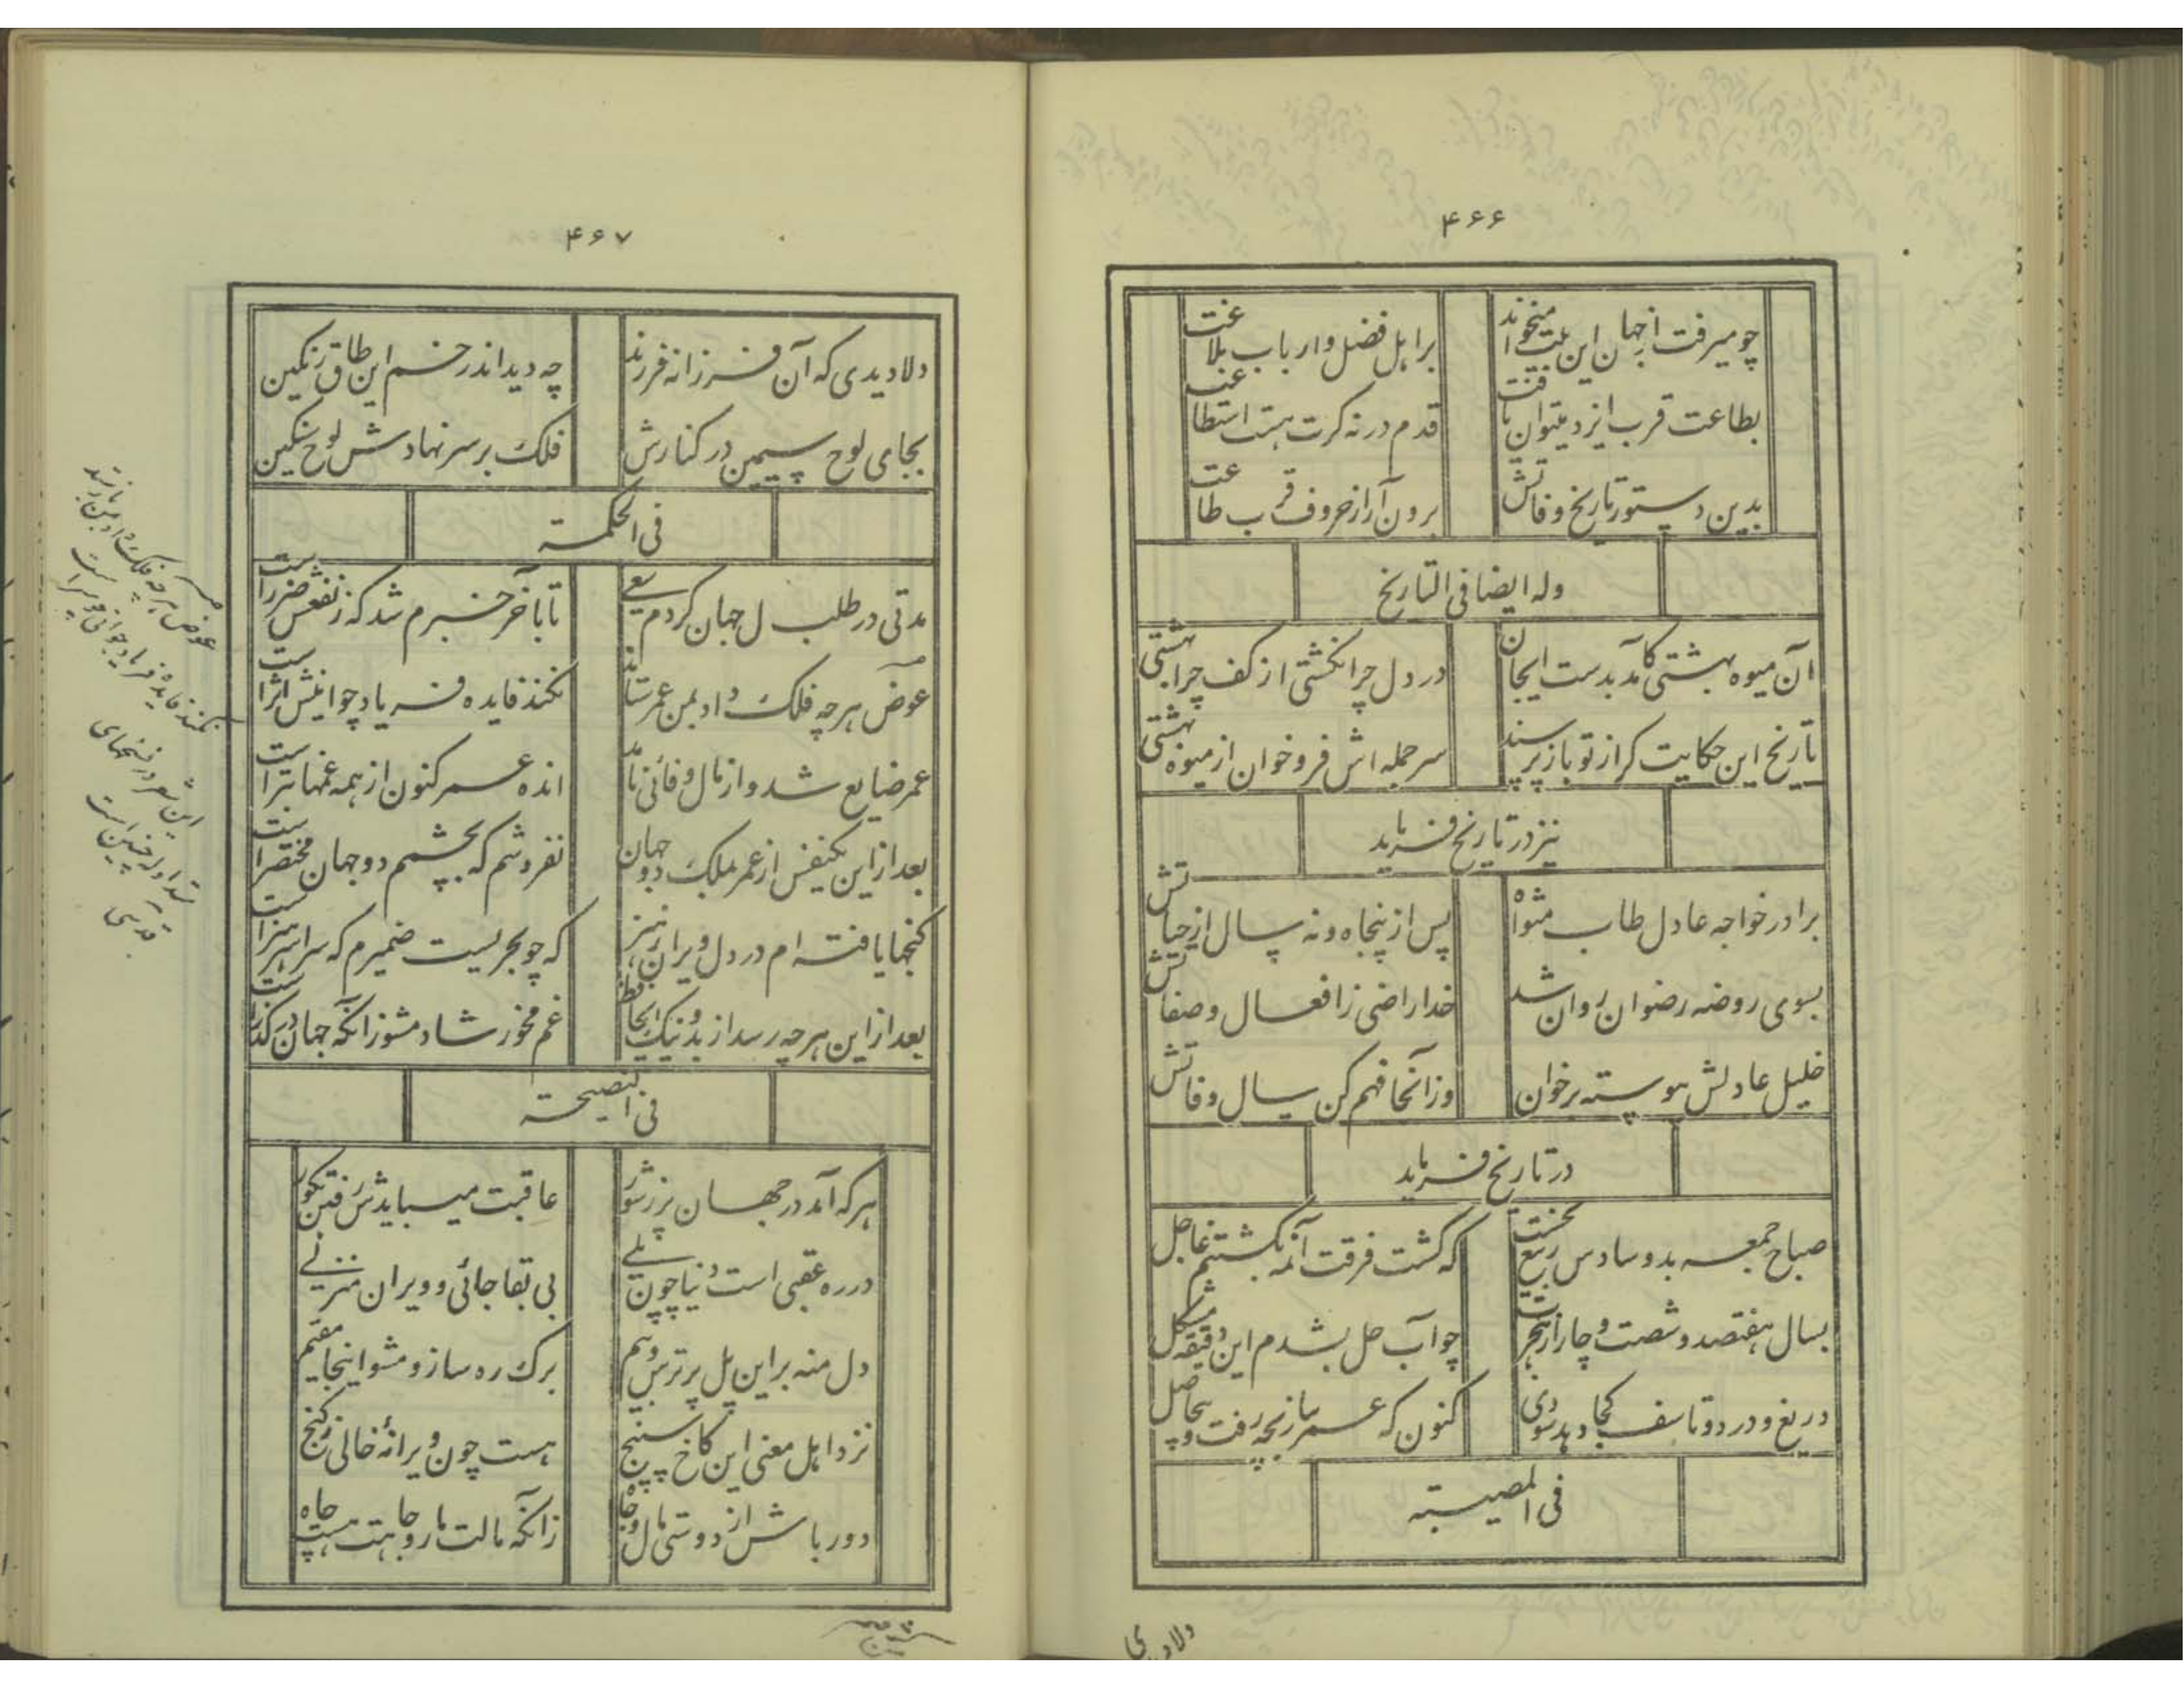 ۴۶۶
چو میرفت از جهان این بیت میخواند
بر اهل فضل و ارباب بلاغت
بطاعت قرب ایزد میتوان یافت
قدم در نه گرت هست استطاعت
بدین دستور تاریخ وفاتش
برون آر از حروف قرب طاعت
وله ایضا فی التاریخ
آن میوه بهشتی کآمد بدستت ایجان
در دل چرا نکشتی از کف چرا بهشتی
تاریخ این حکایت گر از تو باز پرسند
سر جمله اش فرو خوان از میوه بهشتی
نیز در تاریخ فرماید
برادر خواجه عادل طاب مثواه
پس از پنجاه و نه سال از حیاتش
بسوی روضه رضوان روان شد
خدا راضی ز افعال و صفاتش
خلیل عادلش پیوسته برخوان
وز آنجا فهم کن سال وفاتش
در تاریخ فرماید
صباح جمعه بد و سادس ربیع نخست
که گشت فرقت آنمه نکشتنم عاجل
بسال هفتصد و شصت و چار از هجرت
چو آب حل بشدم این دقیقه مشکل
دریغ و درد و تاسف کجا دهد سودی
کنون که عمر ببازیچه رفت و بیحاصل
فی المصیبته
دلا دیدی
۴۶۷
دلا دیدی که آن فرزانه فرزند
چه دید اندر خم این طاق رنگین
بجای لوح سیمین در کنارش
فلک بر سر نهادش لوح سنگین
فی الحکمته
مدتی در طلب مال جهان کردم سعی
تا بآخر خبرم شد که ز نفعش ضرر است
عوض هر چه فلک داد بمن عمر ستاند
نکند فایده فریاد چو اینش اثر است
عمر ضایع شد و از مال وفائی نامد
انده عمر کنون از همه غمها بتر است
بعد از این یکنفس از عمر بملک دو جهان
نفروشم که بچشمم دو جهان مختصر است
گنجها یافته ام در دل ویران ز هنر
که چو بحریست ضمیرم که سراسر هنر است
بعد از این هر چه رسد از بد و نیک ای حافظ
غم مخور شاد مشو زانکه جهان در گذر است
فی النصیحته
هر که آمد در جهان پر ز شور
عاقبت میبایدش رفتن بگور
در ره عقبی است دنیا چون پلی
بی بقا جائی و ویران منزلی
دل منه بر این پل پر ترس و بیم
برگ ره ساز و مشو اینجا مقیم
نزد اهل معنی این کاخ سپنج
هست چون ویرانهٔ خالی ز گنج
دور باش از دوستی مال و جاه
زانکه مالت مار و جاهت هست چاه
عوض هر چه فلک داد بمن باز ستد
نکند فایدهٔ فریاد جوانی و پیر است
این شعر در نسخهای
متداوله چنین است
قدسی